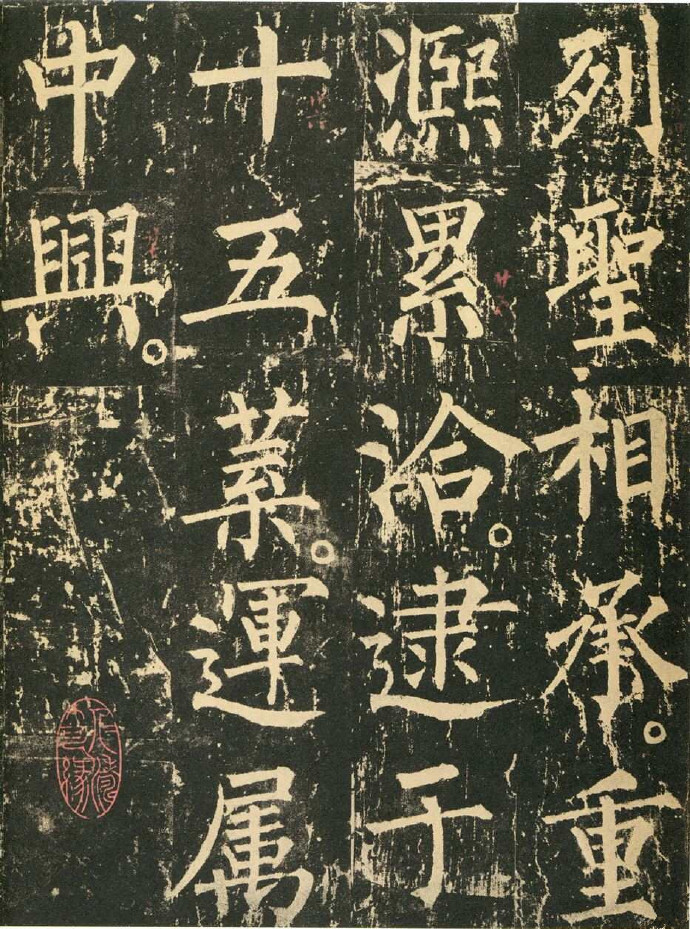 列聖相承。重
凞累洽。逮于
十五葉。運属
中興。